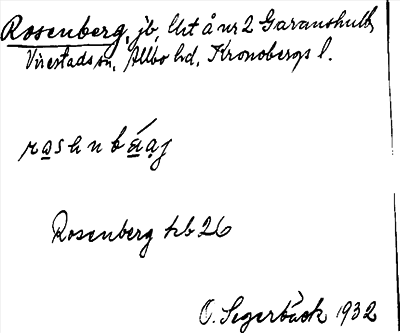 Rosenberg, jb, lht å nr 2 Garanshult,
Virestads sn, Allbo hd, Kronobergs l.
Rosenberg hb 26
O. Segerbäck 1932